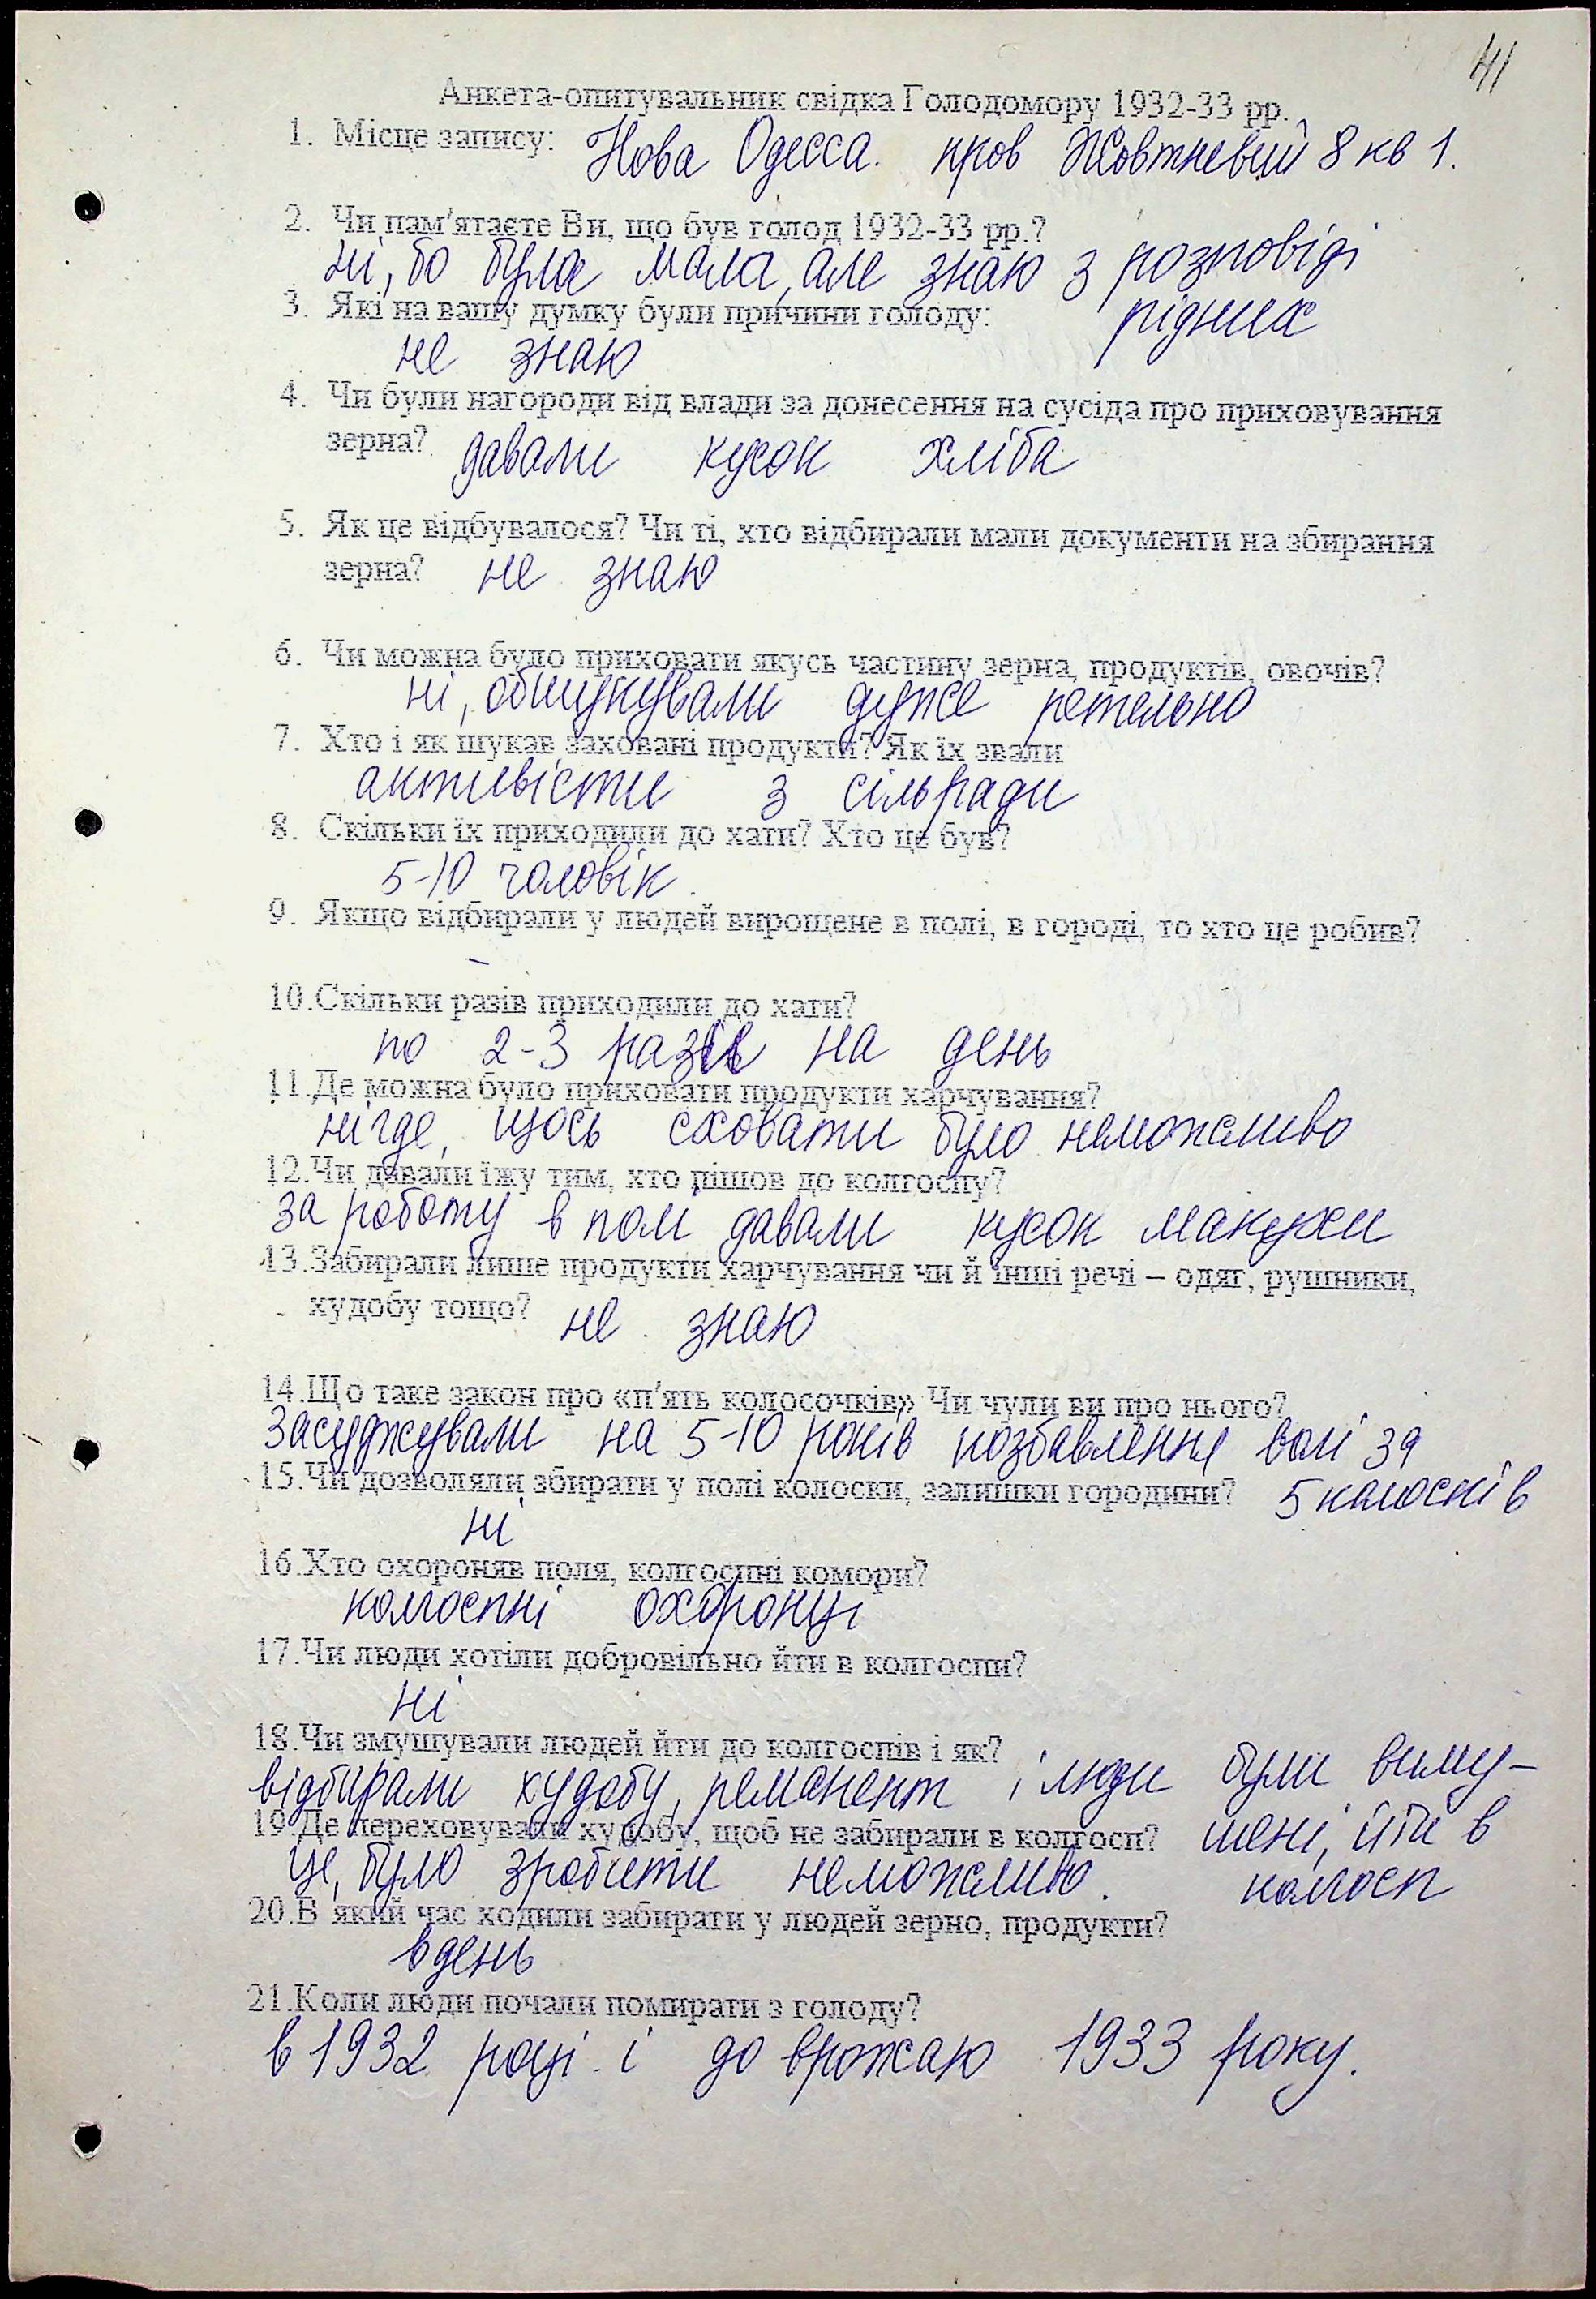 41
Анкета-опитувальник свідка Голодомору 1932-33 рр.
1. Місце запису: Нова Одесса. пров Жовтневий 8 кв 1.
2. Чи пам'ятаєте Ви, що був голод 1932-33 рр.?
ні, бо була мала, але знаю з розповіді
рідних
3. Які на вашу думку були причини голоду:
не знаю
4. Чи були нагороди від влади за донесення на сусіда про приховування
зерна? давали кусок хліба
5. Як це відбувалося? Чи ті, хто відбирали мали документи на збирання
зерна? не знаю
6. Чи можна було приховати якусь частину зерна, продуктів, овочів?
ні, обшукували дуже ретельно
7. Хто і як шукав заховані продукти? Як їх звали
активісти з сільради
8. Скільки їх приходили до хати? Хто це був?
5-10 чоловік.
9. Якщо відбирали у людей вирощене в полі, в городі, то хто це робив?
–
10.Скільки разів приходили до хати?
по 2-3 разів на день
11.Де можна було приховати продукти харчування?
нігде, щось сховати було неможливо
12.Чи давали їжу тим, хто пішов до колгоспу?
за роботу в полі давали кусок макухи
13.Забирали лише продукти харчування чи й інші речі – одяг, рушники,
худобу тощо? не знаю
14.Що таке закон про «п'ять колосочків» Чи чули ви про нього?
засуджували на 5-10 років позбавлення волі за
5 колосків
15.Чи дозволяли збирати у полі колоски, залишки городини?
ні
16.Хто охороняв поля, колгоспні комори?
колгоспні охоронці
17.Чи люди хотіли добровільно йти в колгоспи?
ні
18.Чи змушували людей йти до колгоспів і як?
відбирали худобу, реманент і люди були виму-
шені, йти в
колгосп
19.Де переховували худобу, щоб не забирали в колгосп?
це, було зробити неможливо.
20.В який час ходили забирати у людей зерно, продукти?
вдень
21.Коли люди почали помирати з голоду?
в 1932 році і до врожаю 1933 року.